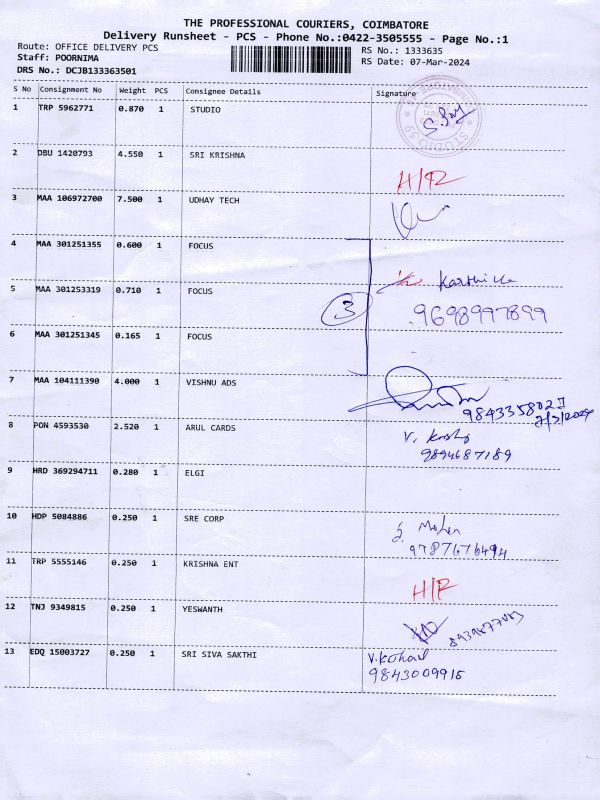 THE PROFESSIONAL COURIERS, COIMBATORE
Delivery Runsheet - PCS - Phone No.:0422-3505555 - Page No.:1
Route: OFFICE DELIVERY PCS
RS No.: 1333635
Staff: POORNIMA
RS Date: 07-Mar-2024
DRS No.: DCJB133363501
S No Consignment No Weight PCS Consignee Details Signature
1 TRP 5962771 0.870 1 STUDIO
STUDIO 59
2 DBU 1420793 4.550 1 SRI KRISHNA
H/R
3 MAA 106972700 7.500 1 UDHAY TECH
4 MAA 301251355 0.600 1 FOCUS
5 MAA 301253319 0.710 1 FOCUS
3
9698997899
6 MAA 301251345 0.165 1 FOCUS
7 MAA 104111390 4.000 1 VISHNU ADS
9843358027
7/3/2024
8 PON 4593530 2.520 1 ARUL CARDS
9894687189
9 HRD 369294711 0.280 1 ELGI
10 HDP 5084886 0.250 1 SRE CORP
9787676494
11 TRP 5555146 0.250 1 KRISHNA ENT
H/R
12 TNJ 9349815 0.250 1 YESWANTH
13 EDQ 15003727 0.250 1 SRI SIVA SAKTHI
9843009915